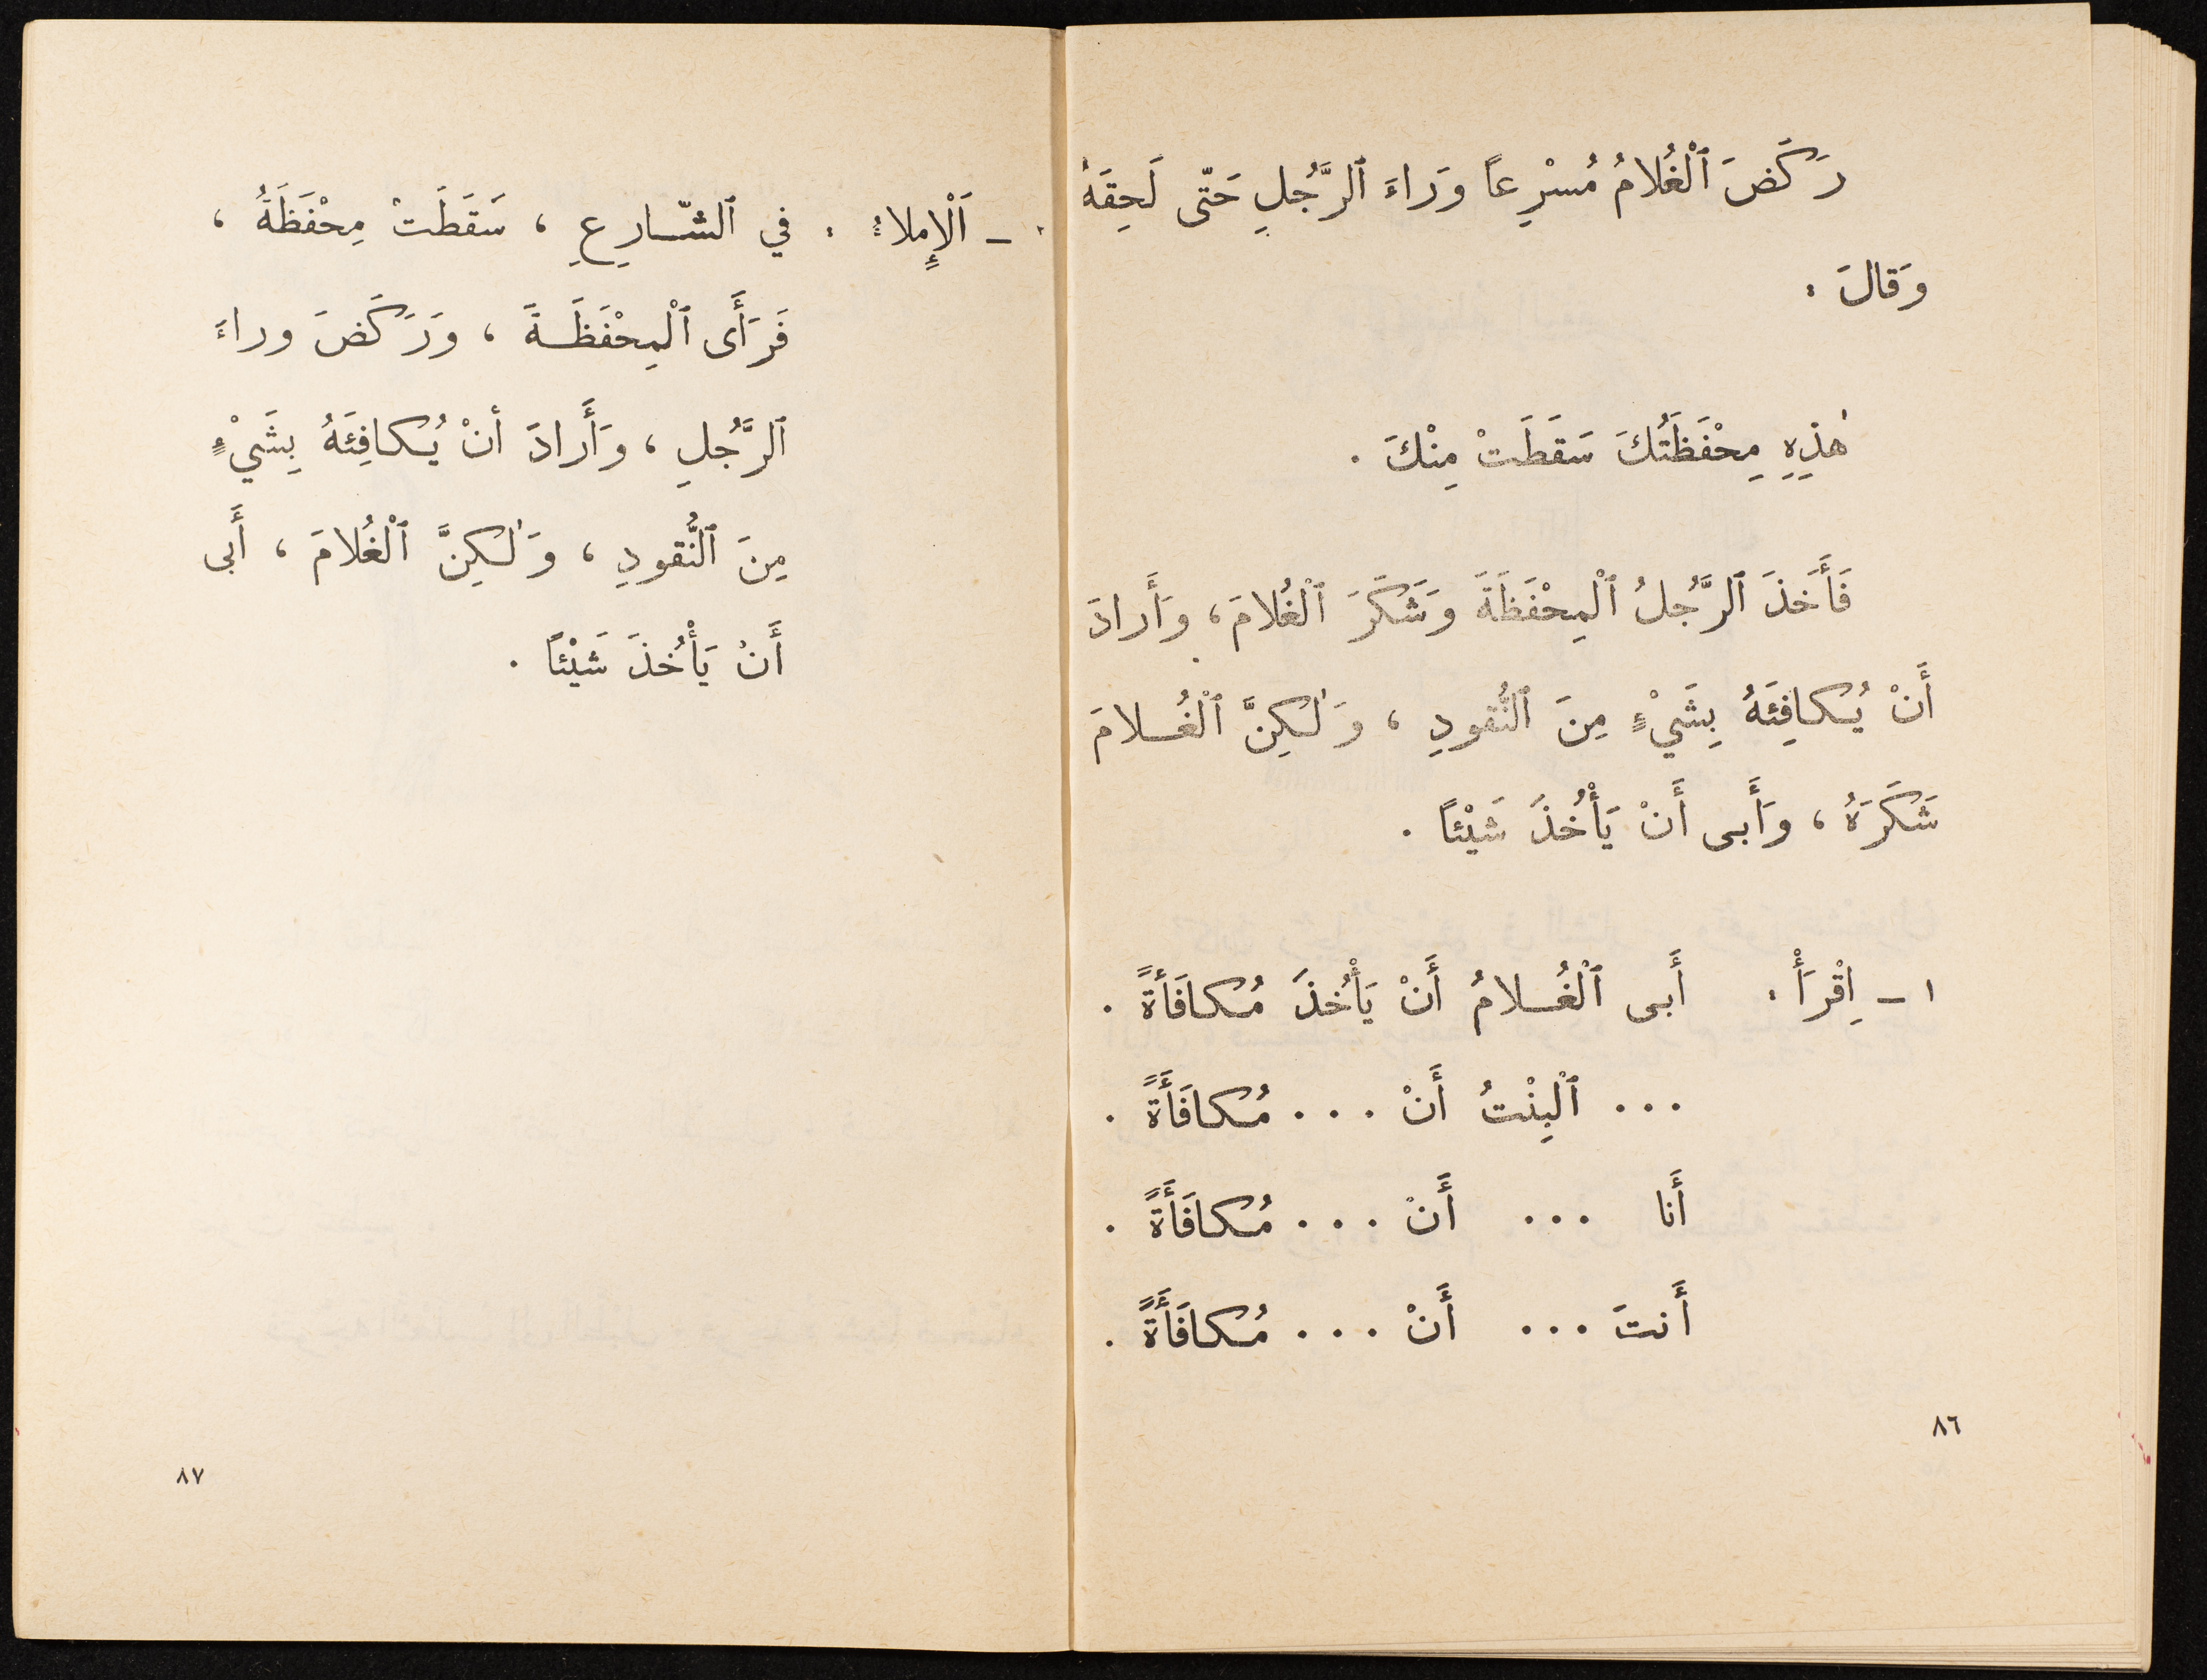 رَكَضَ ٱلْغُلامُ مُسْرِعاً وَراءَ ٱلرَّجُلِ حَتّى لَحِقَهُ
وَقالَ :
هٰذِهِ مِحْفَظَتُكَ سَقَطَتْ مِنْكَ .
فَأَخَذَ ٱلرَّجُلُ ٱلْمِحْفَظَةَ وَشَكَرَ ٱلْغُلامَ ، وَأَرادَ
أَنْ يُكافِئَهُ بِشَيْءٍ مِنَ ٱلنُّقودِ ، وَلٰكِنَّ ٱلْغُـلامَ
شَكَرَهُ ، وَأَبى أَنْ يَأْخُذَ شَيْئاً .
١ ـ اِقْرَأْ : أَبى ٱلْغُـلامُ أَنْ يَأْخُذَ مُكافَأَةً .
... ٱلْبِنْتُ أَنْ ... مُكافَأَةً .
أَنا ... أَنْ ... مُكافَأَةً .
أَنتَ ... أَنْ ... مُكافَأَةً .
٨٦
ـ اَلْإِملاءُ : في ٱلشّـارِعِ ، سَقَطَتْ مِحْفَظَةُ ،
فَرَأَى ٱلْمِحْفَظَـةَ ، وَرَكَضَ وراءَ
ٱلرَّجُلِ ، وَأَرادَ أنْ يُكافِئَهُ بِشَيْءٍ
مِنَ ٱلنُّقودِ ، وَلٰكِنَّ ٱلْغُلامَ ، أَبى
أَنْ يَأْخُذَ شَيْئاً .
٨٧